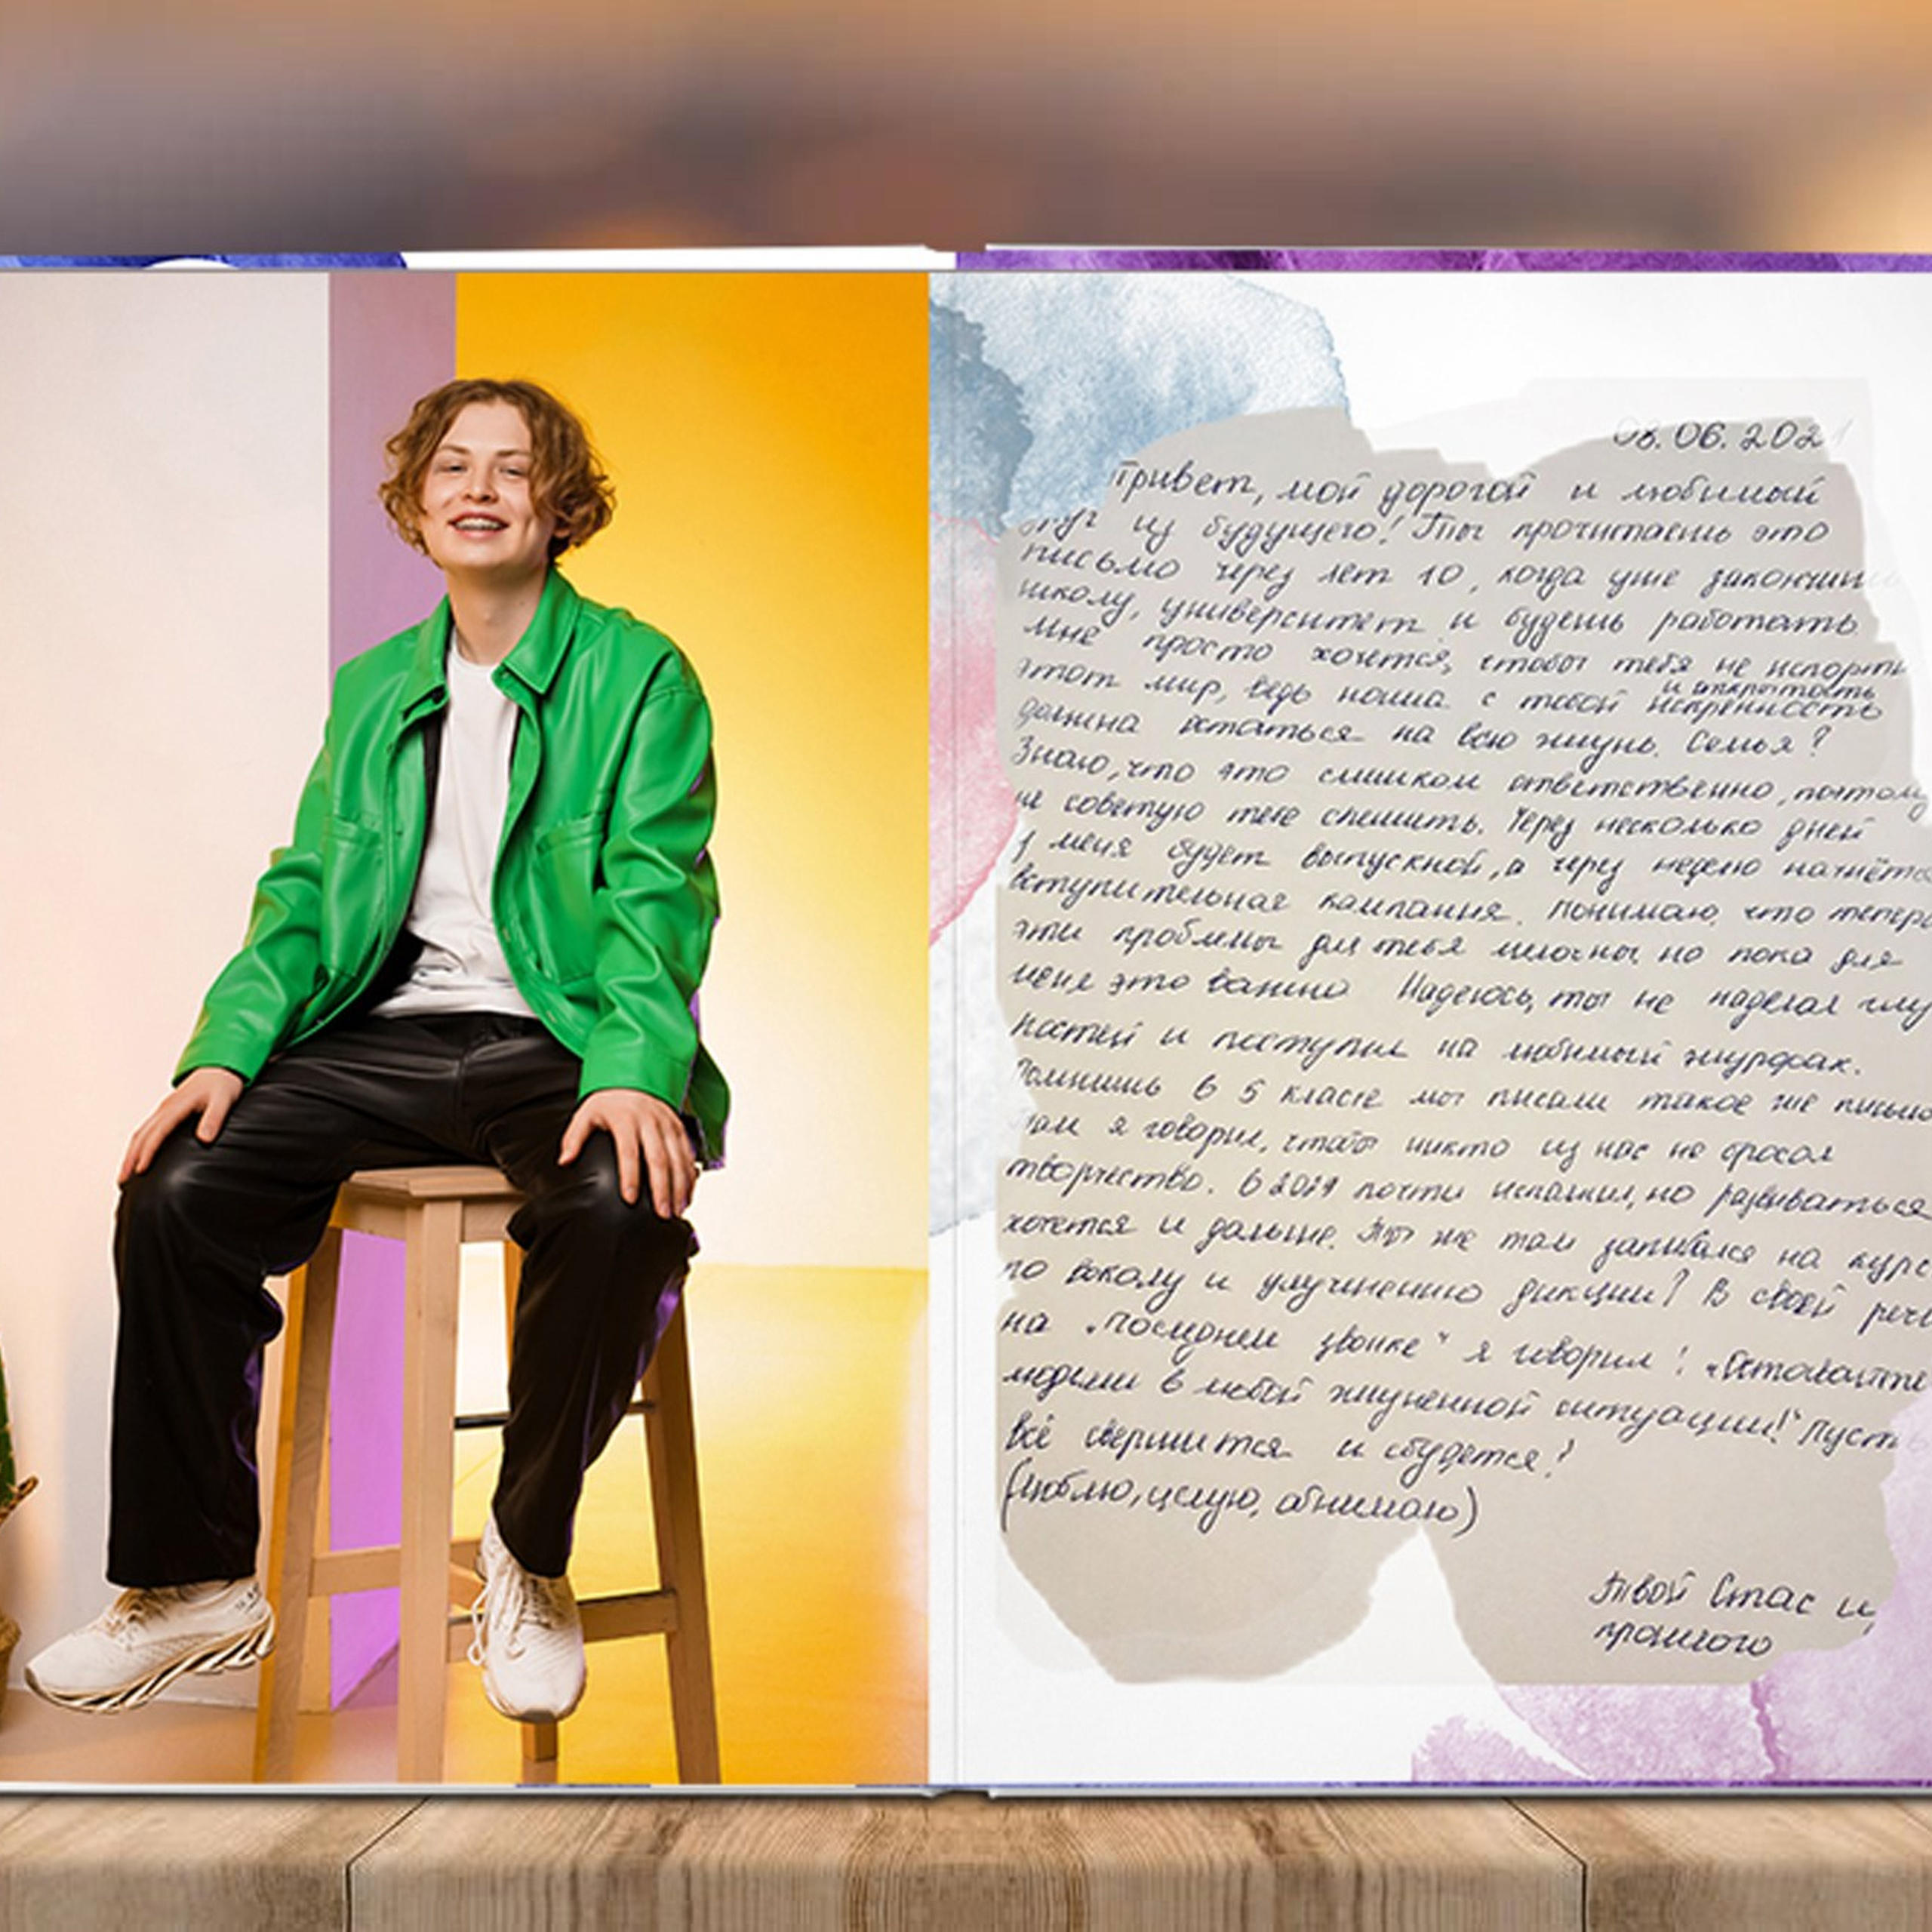 08.06.2021
Привет, мой дорогой и любимый
друг из будущего! Ты прочитаешь это
письмо через лет 10, когда уже закончишь
школу, университет и будешь работать.
Мне просто хочется, чтобы тебя не испорти
этот мир, ведь наша с тобой искренность
и открытость
должна остаться на всю жизнь. Семья?
Знаю, что это слишком ответственно, поэтому
не советую тебе спешить. Через несколько дней
у меня будет выпускной, а через неделю начнётся
вступительная кампания. Понимаю, что теперь
эти проблемы для тебя мелочны, но пока для
меня это важно. Надеюсь, ты не наделал глу
постей и поступил на любимый журфак.
Помнишь в 5 классе мы писали такое же письмо
Там я говорил, чтобы никто из нас не бросал
творчество. В 2021 почти, но развиваться
хочется и дальше. Ты же там записался на курс
по вокалу и улучшению дикции? В своей речи
на "Последнем звонке" я говорил: "Оставайтесь
людьми в любой жизненной ситуации!" Пусть
всё свершится и сбудется!
(Люблю, целую, обнимаю)
Твой Стас из
прошлого